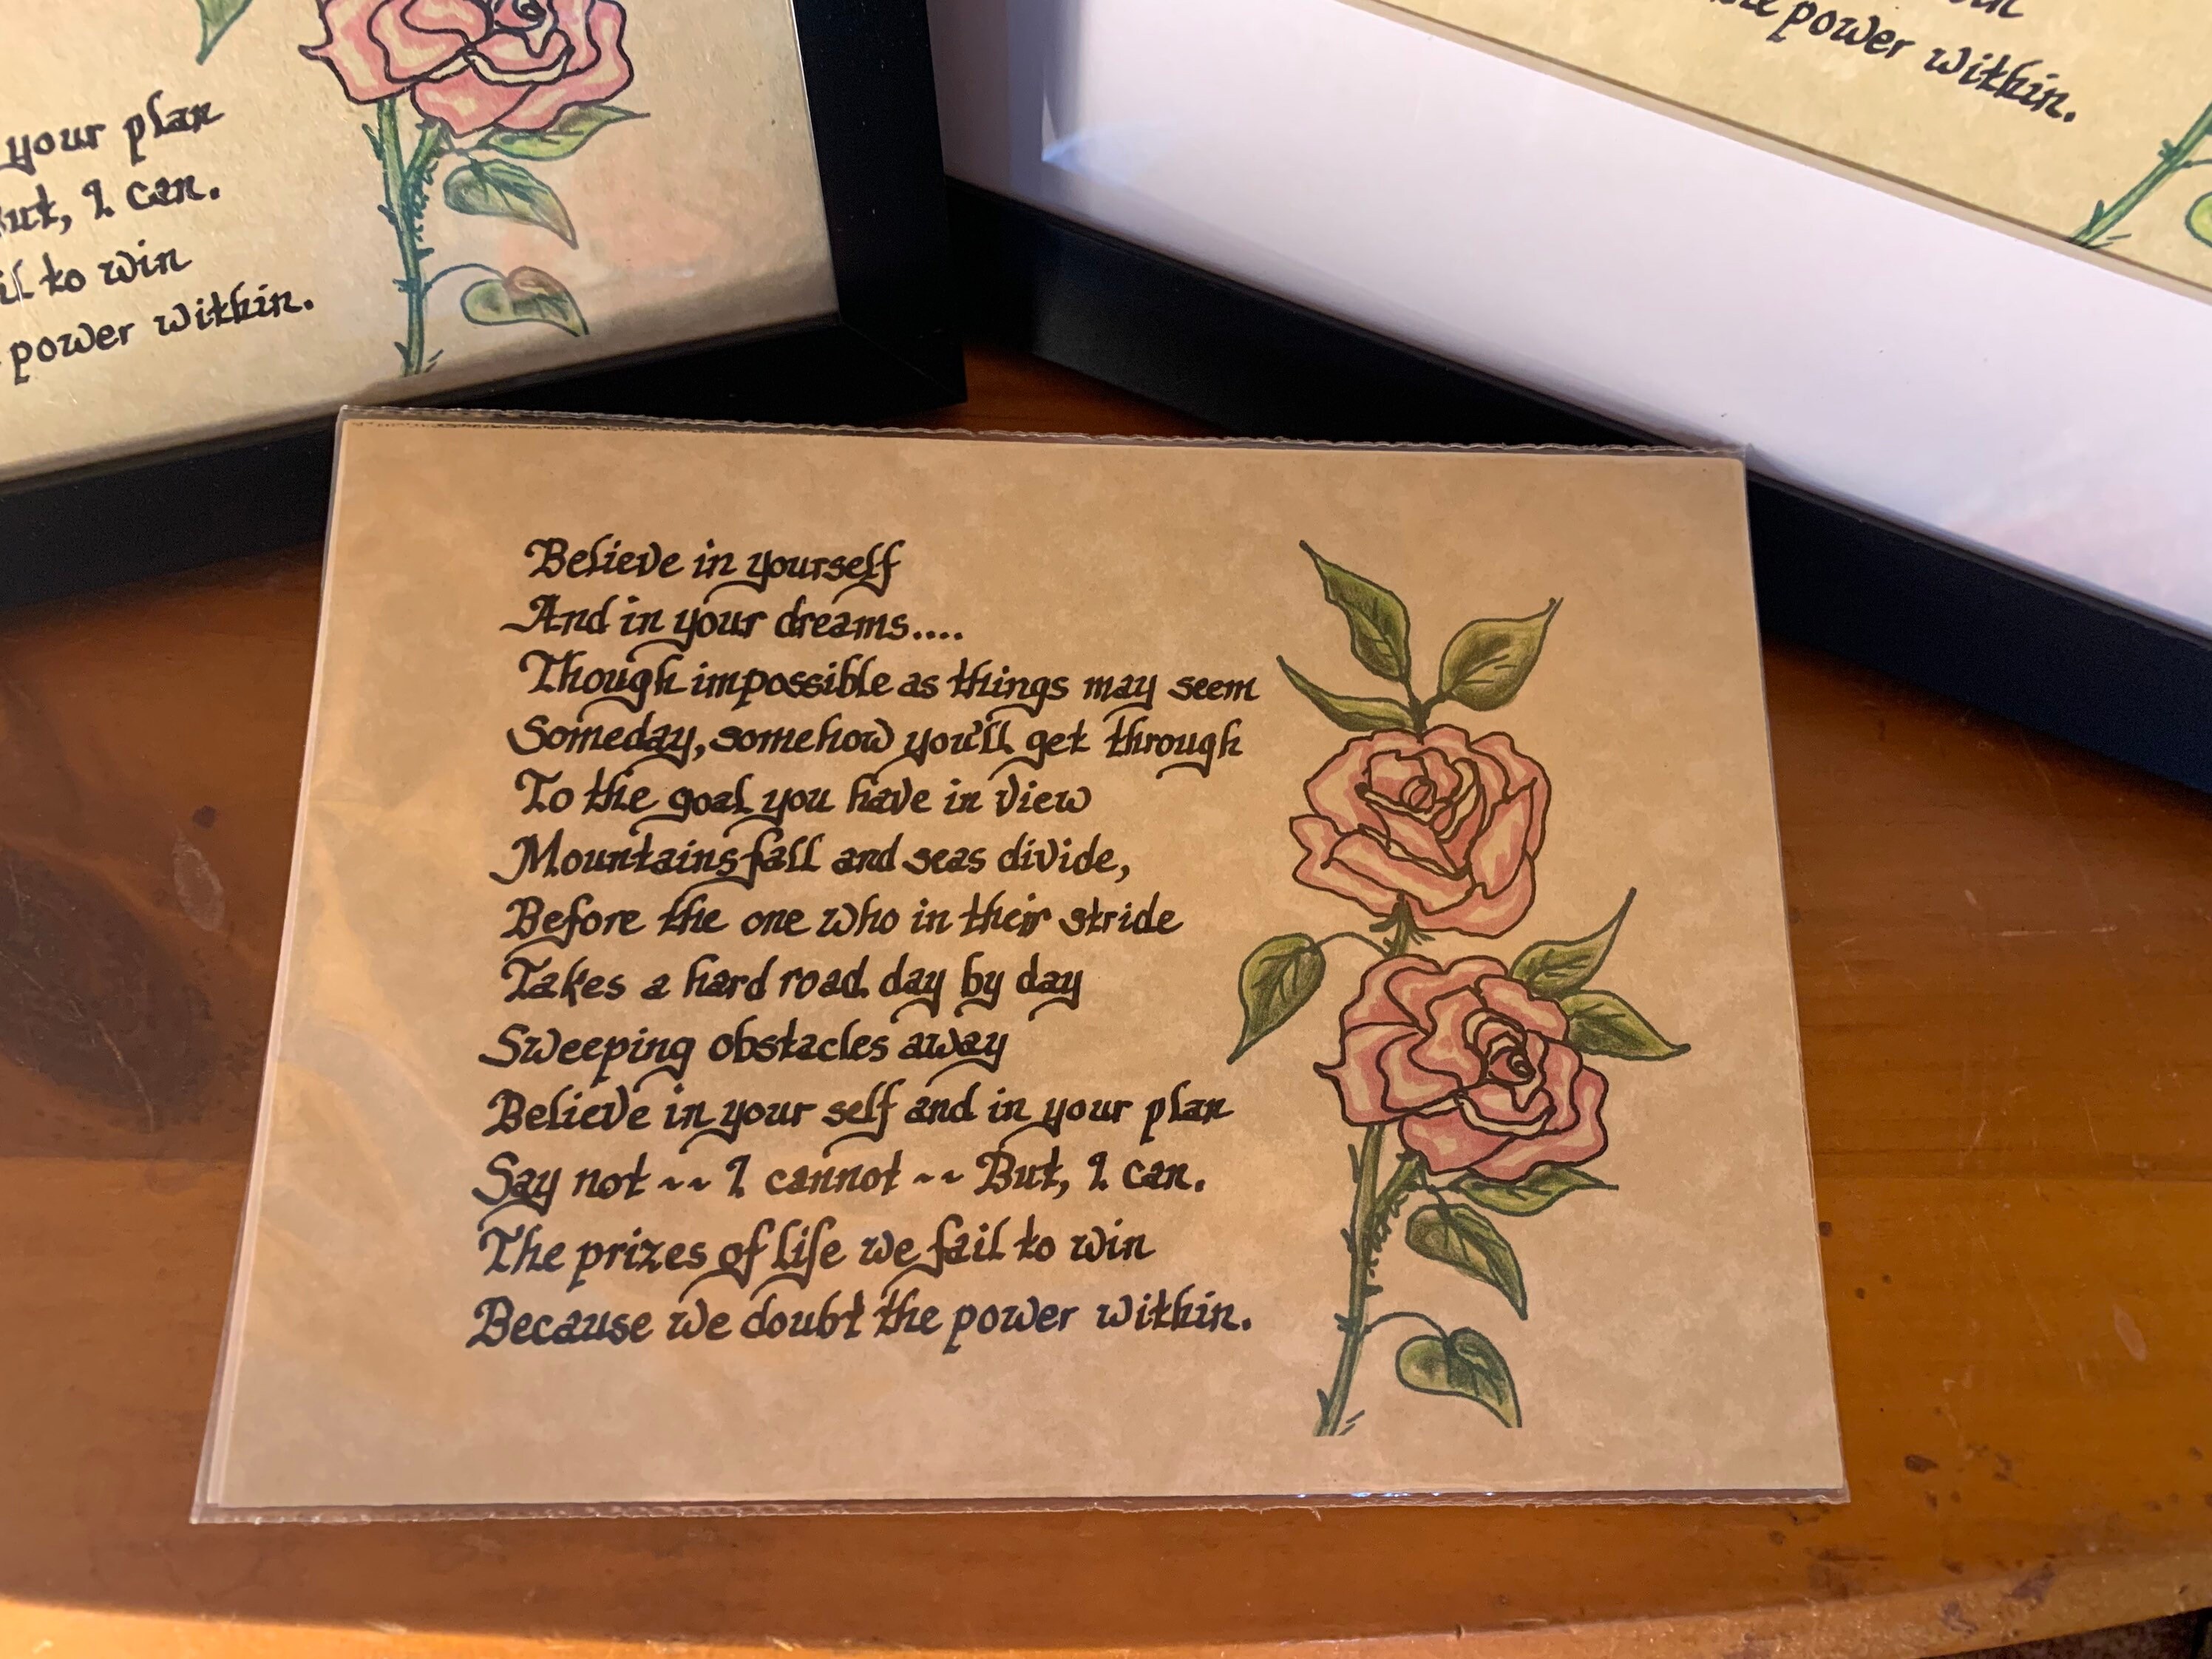 your plan
But, I can.
to win
power within.
power within.
Believe in yourself
And in your dreams....
Though impossible as things may seem
Someday, somehow you'll get through
To the goal you have in view
Mountains fall and seas divide,
Before the one who in their stride
Takes a hard road day by day
Sweeping obstacles away
Believe in your self and in your plan
Say not ~~ I cannot ~~ But, I can.
The prizes of life we fail to win
Because we doubt the power within.